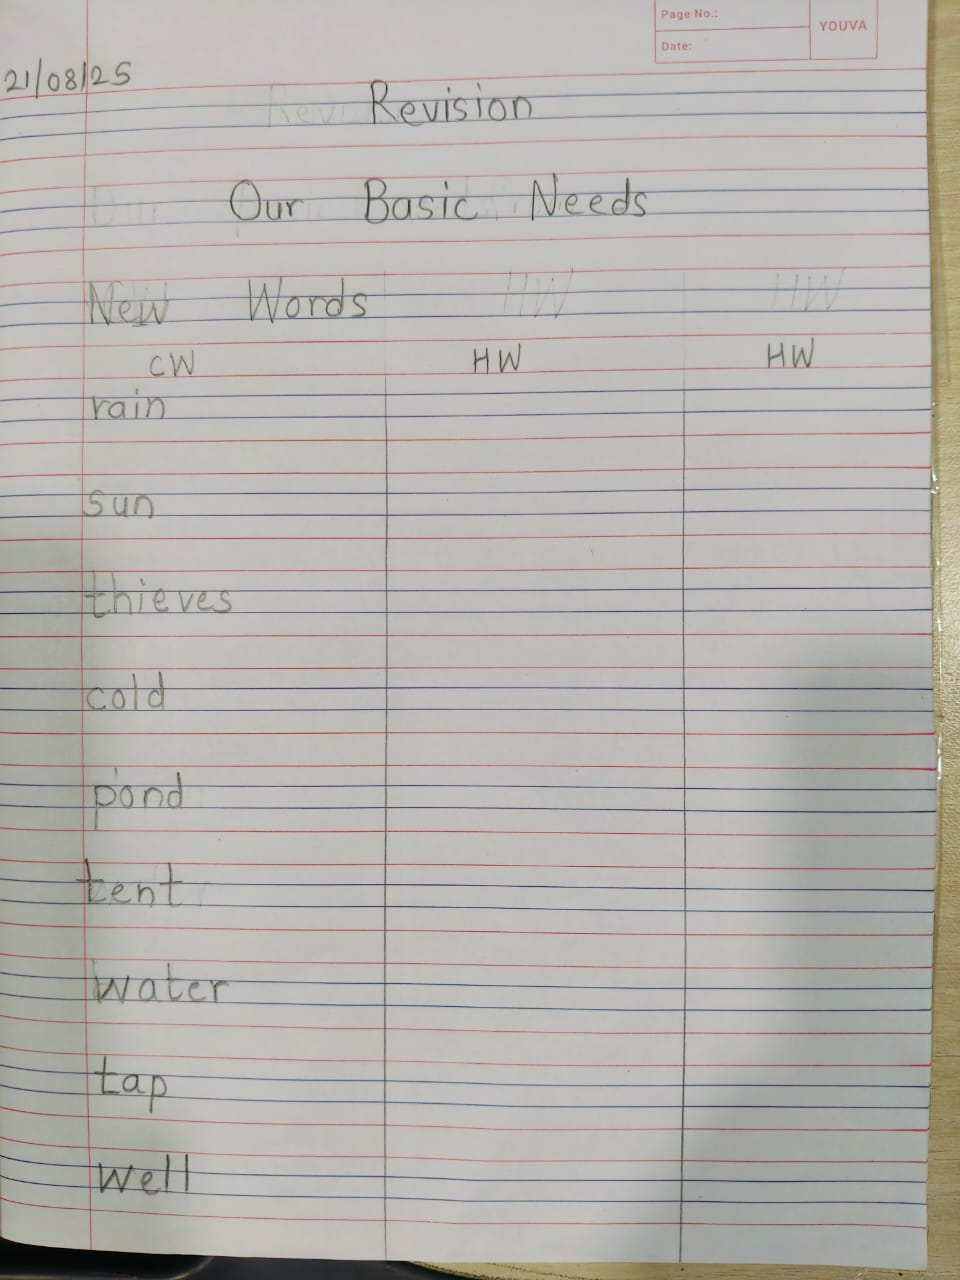 Page No.:
YOUVA
Date:
21/08/25
Revision
Our Basic Needs
New Words
CW HW HW
rain
sun
thieves
cold
pond
tent
water
tap
well